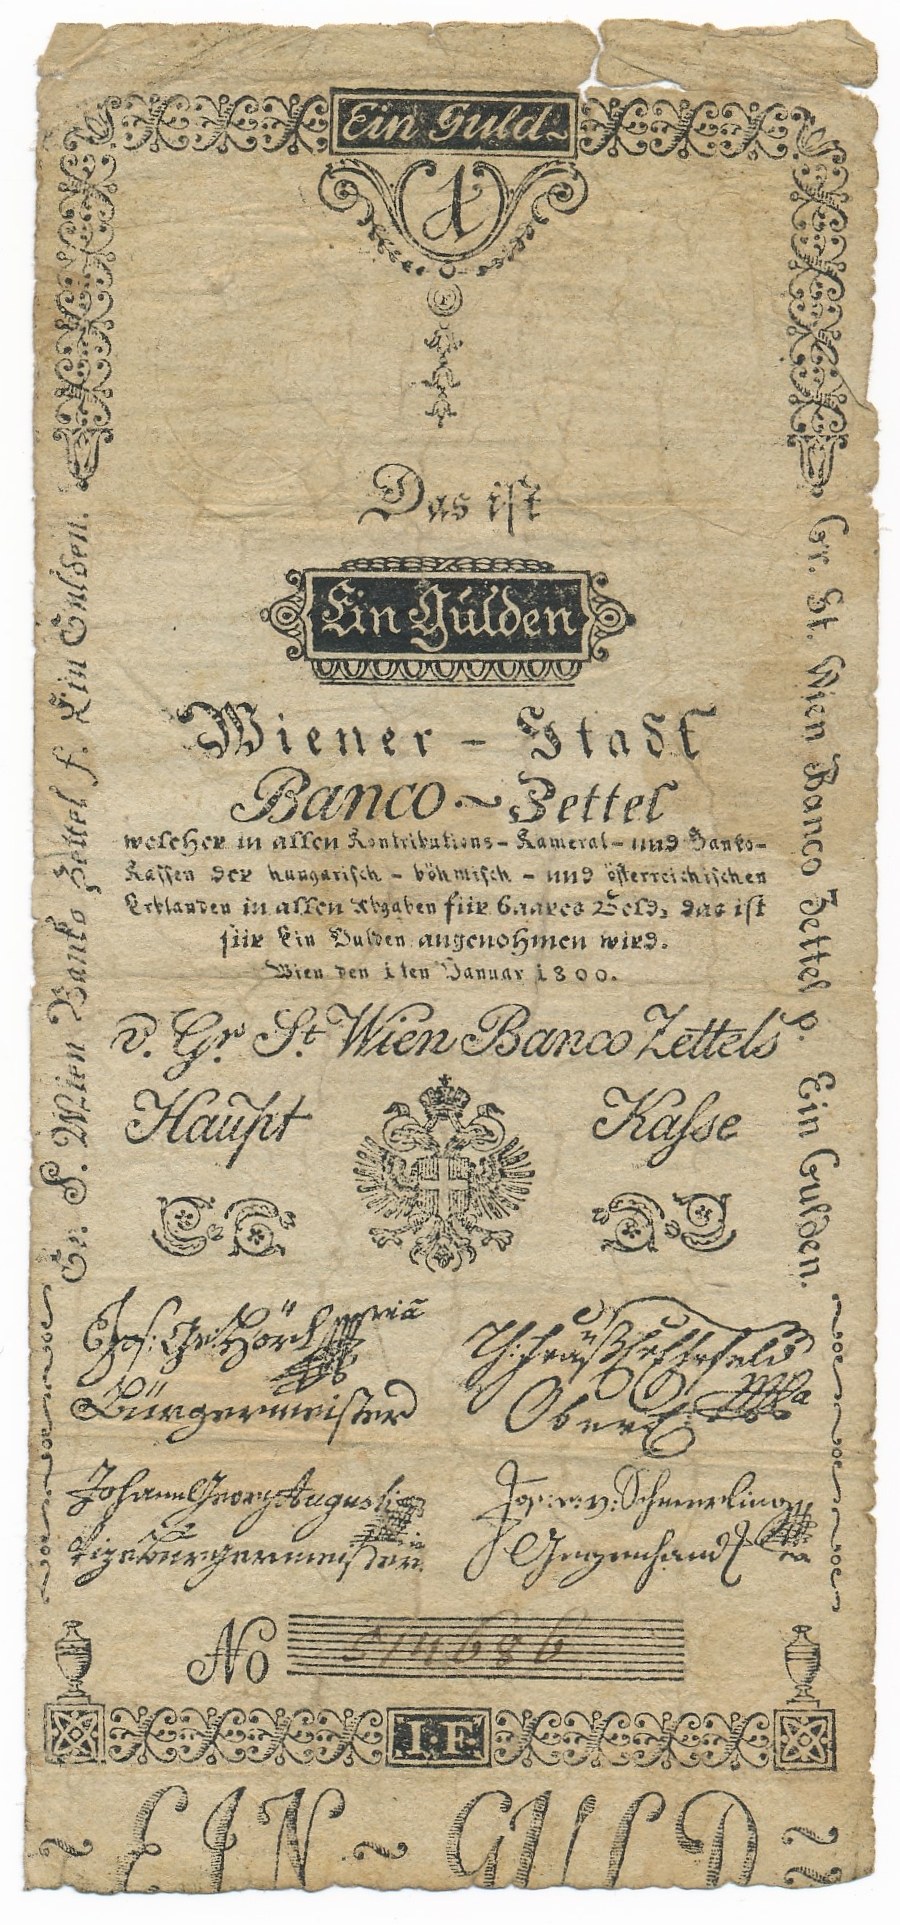 Ein Guld~
1
F
Das ist
Ein Gulden
Wiener - Stadt
Banco ~ Zettel
welcher in allen Kontributions - Kameral - und Banko-
Kassen der hungarisch - böhmisch - und österreichischen
Erblanden in allen Abgaben für baares Geld, das ist
für Ein Gulden angenohmen wird.
Wien den 1ten Januar 1800.
v. Gr St. Wien Banco Zettels
Haupt Kasse
Gr. S. Wien Banko Zettel f. Ein Gulden.
Gr. St. Wien Banco Zettel p. Ein Gulden.
Jos: Ge: Hörl
Bürgermeister
Ober
Johann Georg Augusti
Vizebürgermeister.
v: Schmerling
Gegenhand
No 514686
I·F.
~ EIN ~ GULD ~